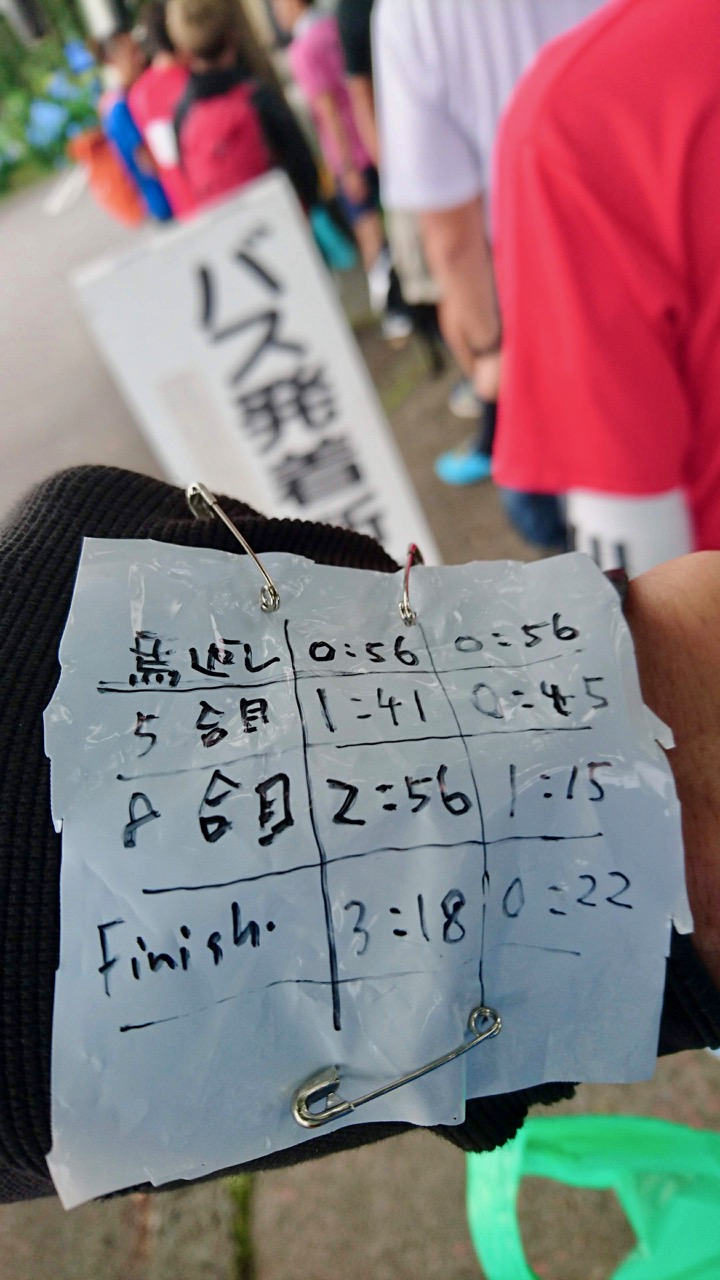 バス発着所
馬返し 0:56 0:56
5合目 1:41 0:45
8合目 2:56 1:15
Finish. 3:18 0:22